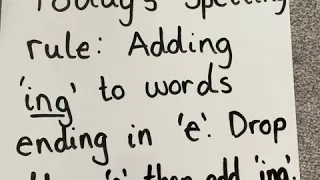 Today's Spelling
rule: Adding
'ing' to words
ending in 'e'. Drop
the 'e' then add 'ing'.